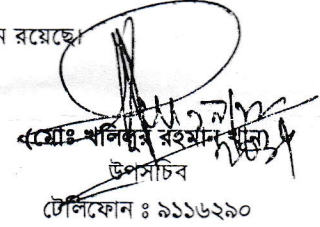 রয়েছে।
(মোঃ খলিলুর রহমান খান)
উপসচিব
টেলিফোন ঃ ৯১১৬২৯০